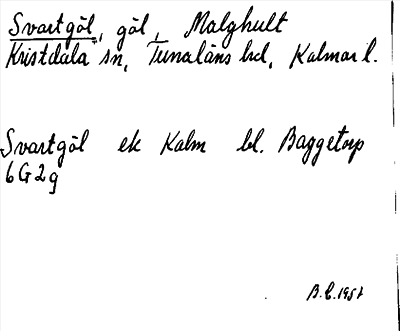 Svartgöl, göl, Malghult
Kristdala sn, Tunaläns hd, Kalmar l.
Svartgöl ek Kalm bl. Baggetorp
6G2g
B.E. 1957